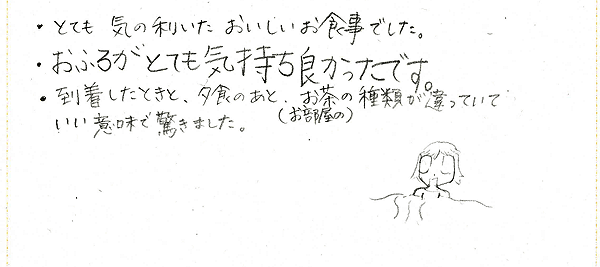 ・とても 気の利いた おいしいお食事でした。
・おふろがとても気持ち良かったです。
・到着したときと、夕食のあと、お茶の種類が違っていて
(お部屋の)
いい意味で驚きました。